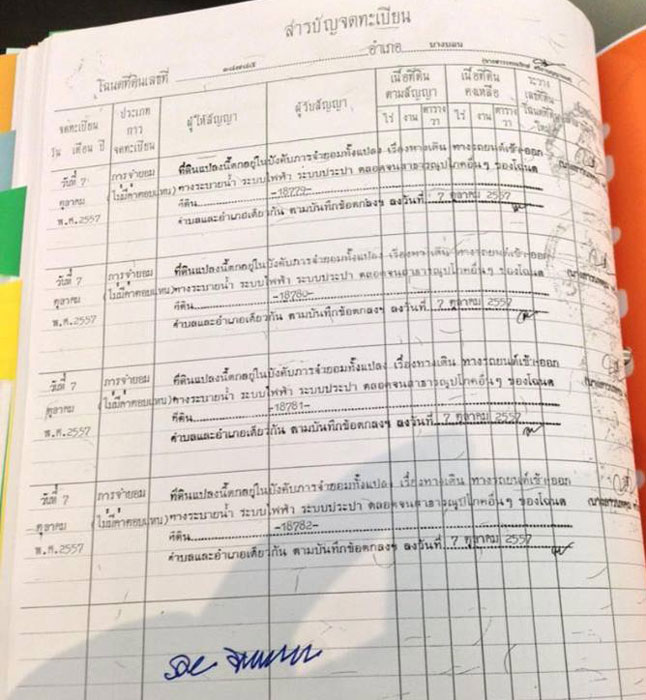 สารบัญจดทะเบียน
โฉนดที่ดินเลขที่ อำเภอ บางบอน
จดทะเบียน วัน เดือน ปี
ประเภทการจดทะเบียน
ผู้ให้สัญญา
ผู้รับสัญญา
เนื้อที่ดินตามสัญญา
ไร่ งาน ตารางวา
เนื้อที่ดินคงเหลือ
ไร่ งาน ตารางวา
ระวาง เลขที่ดิน
วันที่ 7 การจำยอม ที่ดินแปลงนี้ตกอยู่ในบังคับภารจำยอมทั้งแปลง เรื่องทางเดิน ทางรถยนต์เข้า-ออก
ตุลาคม (ไม่มีค่าตอบแทน) ทางระบายน้ำ ระบบไฟฟ้า ระบบประปา ตลอดจนสาธารณูปโภคอื่นๆ ของโฉนด
ที่ดิน -18779-
พ.ศ.2557 ตำบลและอำเภอเดียวกัน ตามบันทึกข้อตกลงฯ ลงวันที่ 7 ตุลาคม 2557
วันที่ 7 การจำยอม ที่ดินแปลงนี้ตกอยู่ในบังคับภารจำยอมทั้งแปลง เรื่องทางเดิน ทางรถยนต์เข้า-ออก
ตุลาคม (ไม่มีค่าตอบแทน) ทางระบายน้ำ ระบบไฟฟ้า ระบบประปา ตลอดจนสาธารณูปโภคอื่นๆ ของโฉนด
ที่ดิน -18780-
พ.ศ.2557 ตำบลและอำเภอเดียวกัน ตามบันทึกข้อตกลงฯ ลงวันที่ 7 ตุลาคม 2557
วันที่ 7 การจำยอม ที่ดินแปลงนี้ตกอยู่ในบังคับภารจำยอมทั้งแปลง เรื่องทางเดิน ทางรถยนต์เข้า-ออก
ตุลาคม (ไม่มีค่าตอบแทน) ทางระบายน้ำ ระบบไฟฟ้า ระบบประปา ตลอดจนสาธารณูปโภคอื่นๆ ของโฉนด
ที่ดิน -18781-
พ.ศ.2557 ตำบลและอำเภอเดียวกัน ตามบันทึกข้อตกลงฯ ลงวันที่ 7 ตุลาคม 2557
วันที่ 7 การจำยอม ที่ดินแปลงนี้ตกอยู่ในบังคับภารจำยอมทั้งแปลง เรื่องทางเดิน ทางรถยนต์เข้า-ออก
ตุลาคม (ไม่มีค่าตอบแทน) ทางระบายน้ำ ระบบไฟฟ้า ระบบประปา ตลอดจนสาธารณูปโภคอื่นๆ ของโฉนด
ที่ดิน -18782-
พ.ศ.2557 ตำบลและอำเภอเดียวกัน ตามบันทึกข้อตกลงฯ ลงวันที่ 7 ตุลาคม 2557